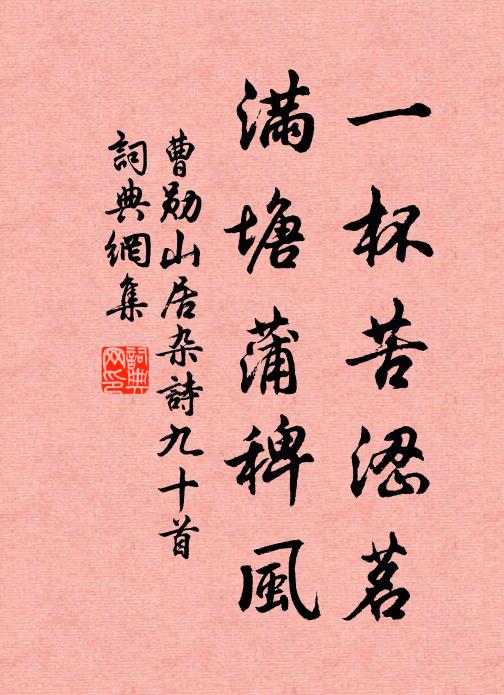 一杯苦涩茗
滿塘蒲稗風
曹勋山居杂詩九十首
詞典網集
詞典
网印